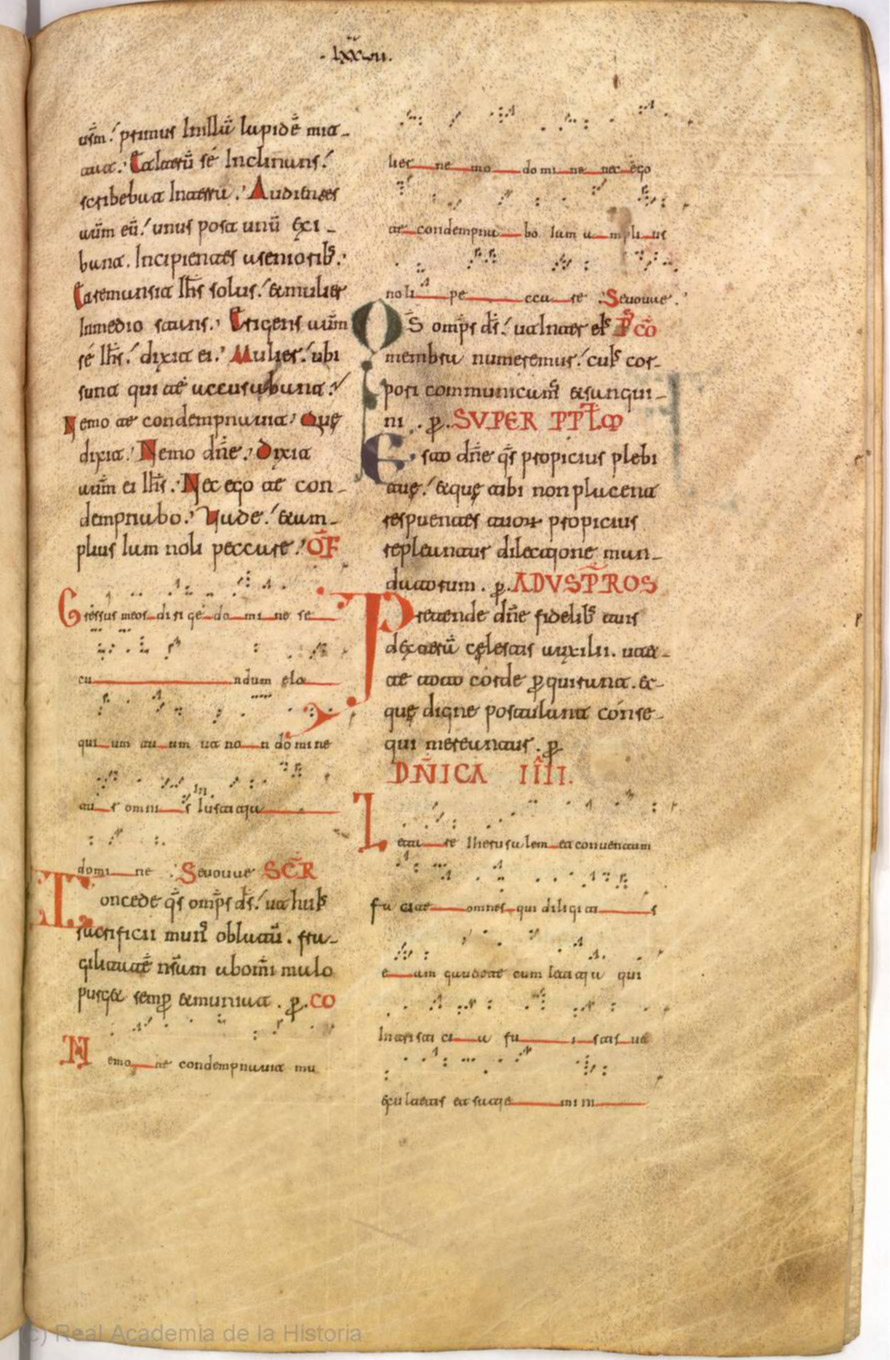 · lxxxvii.
urm̄. primus Inillā lapidē mit-
tat. Et iterū sé Inclinans.
scribebat Interrā. Audientes
autm̄ eū. unus post unū exi-
bant. Incipientes a seniorib;.
Et remansit Ih̄s solus. & mulier
Inmedio stans. Erigens autm̄
sé Ih̄s. dixit ei. Mulier. ubi
sunt qui té accusabant.
Nemo te condempnavit. Que
dixit. Nemo dn̄e. Dixit
autm̄ ei Ih̄s. Nec ego te con-
dempnabo. Vade. & am-
plius Iam noli peccare. OF
Gressus meos dirige domine se
cundum elo
quium tuum ut non domine
tur omnis Iniustitia
domine Seuouae SCR̄
Concede q̄s omp̄s ds̄. ut huius
sacrificii mun̄ oblatū. fra-
gilitatē nr̄am ab om̄i malo
purget semp̄ & muniat. p̄. CO
Nemo te condempnavit mu
lier nemo domine nec ego
te condempnabo Iam amplius
noli peccare Seuouae.
QS omp̄s ds̄. ut Inter ei; P̄CŌ
membra numeremur. cui; cor-
pori communicam̄ & sangui-
ni. p̄. SVPER PPL̄M
Esto dn̄e q̄s propicius plebi
tuę. & que tibi non placent
respuentes tuor propicius
repleantur dilectione man-
datorum. p̄. AD VSP̄ROS
Pretende dn̄e fidelib; tuis
dexterā cęlestis auxilii. ut-
te toto corde p̄quirant. &-
quę digne postulant conse-
qui mereantur. p̄
DN̄ICA IIII.
Letare Iherusalem et conventum
facite omnes qui diligitis
eam gaudete cum letitia qui
Intristicia fuistis ut
exultetis et sacie mini
(c) Real Academia de la Historia